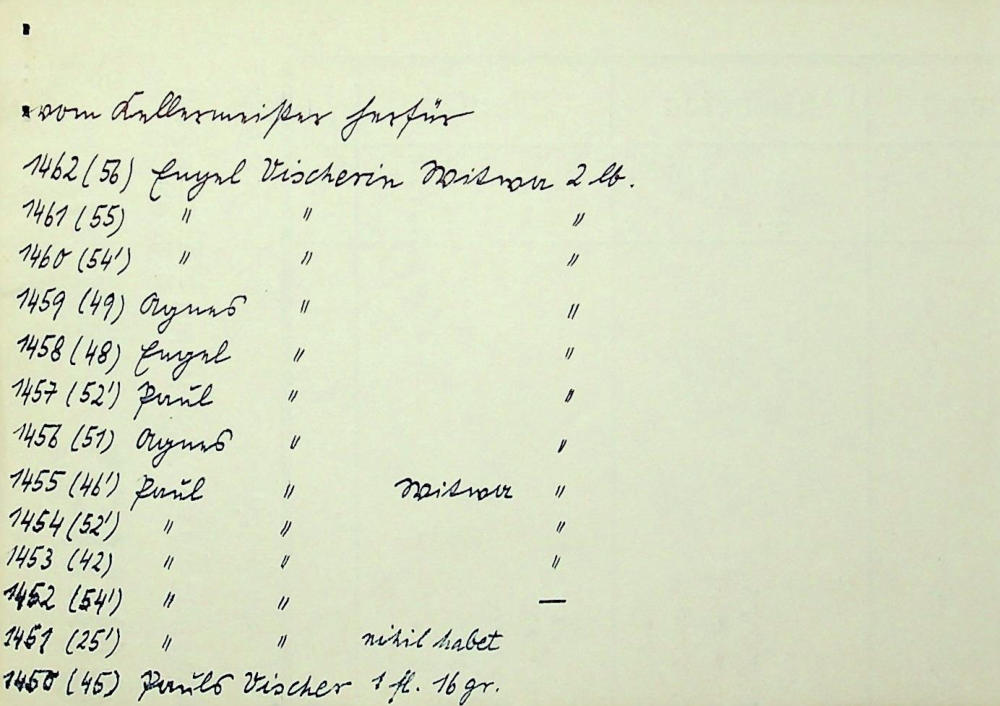 vom Kellermeister herfür
1462 (56) Engel Vischerin Witwer 2 lb.
1461 (55) " " "
1460 (54') " " "
1459 (49) Agnes " "
1458 (48) Engel " "
1457 (52') Paul " "
1456 (51) Agnes " "
1455 (46') Paul " Witwer "
1454 (52') " " "
1453 (42) " " "
1452 (54') " " —
1451 (25') " " nihil habet
1450 (45) Pauls Vischer 1 fl. 16 gr.